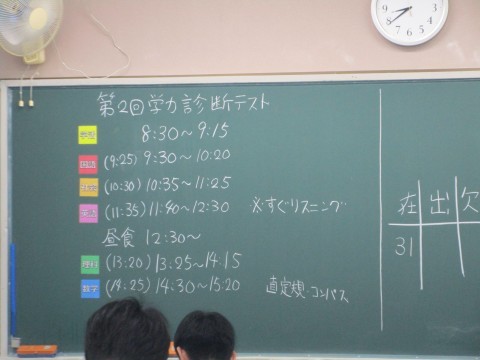 第2回学力診断テスト
学活 8:30～9:15
国語 (9:25) 9:30～10:20
社会 (10:30) 10:35～11:25
英語 (11:35) 11:40～12:30 ※すぐリスニング
昼食 12:30～
理科 (13:20) 13:25～14:15
数学 (14:25) 14:30～15:20 直定規 コンパス
在 出 欠
31